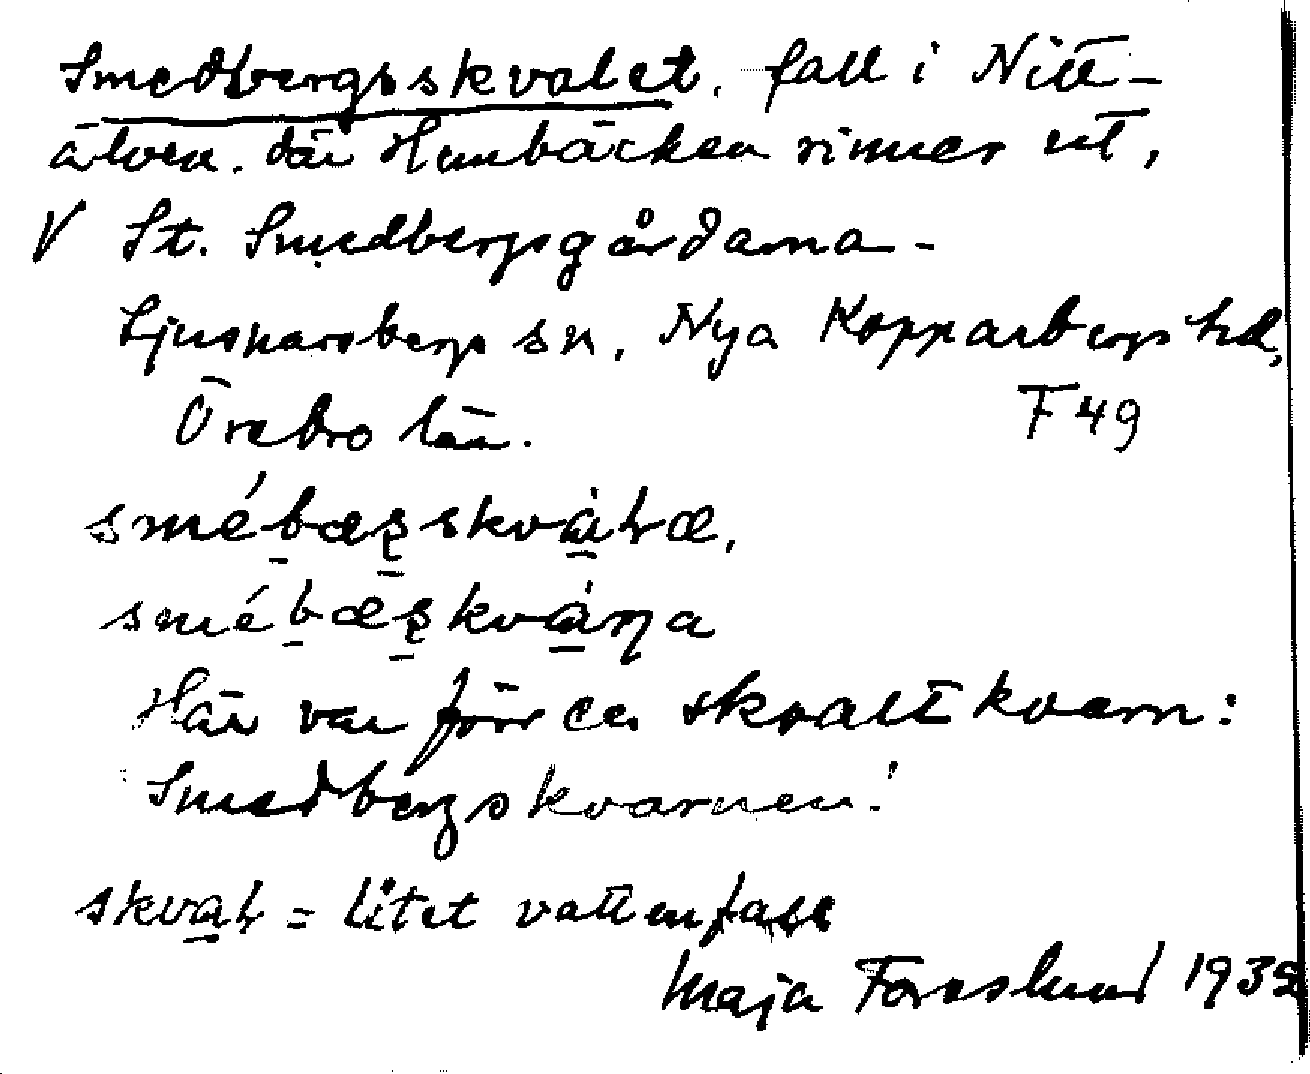 Smedbergsskvalet, fall i Nitt-
älven, där Hanbäcken rinner ut,
V St. Smedbergsgårdarna -
Ljusnarsbergs sn, Nya Kopparbergs hd,
Örebro län. F 49
smébæʂskvàɫæ,
smébæʂkvàɳa
Här var förr en skvaltkvarn:
Smedbergskvarnen!
skvaɫ = litet vattenfall
Maja Forsslund 1932